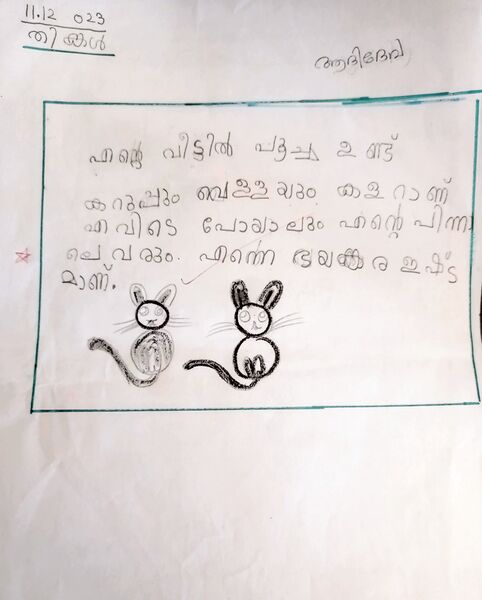 11.12 023
തിങ്കൾ
ആദിദേവ്
എന്റെ വീട്ടിൽ പൂച്ച ഉണ്ട്
കറുപ്പും വെള്ളയും കളറാണ്
എവിടെ പോയാലും എന്റെ പിന്നാ
ലെ വരും. എന്നെ ഭയങ്കര ഇഷ്ട
മാണ്.